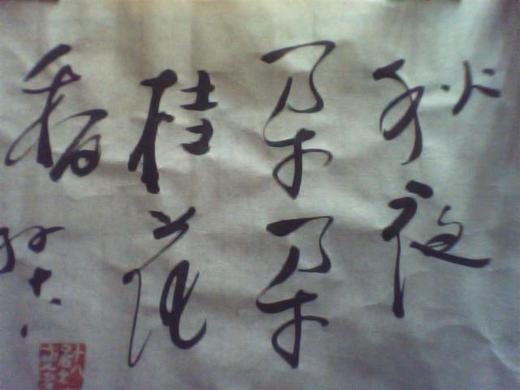 秋夜
朵朵
桂花
香